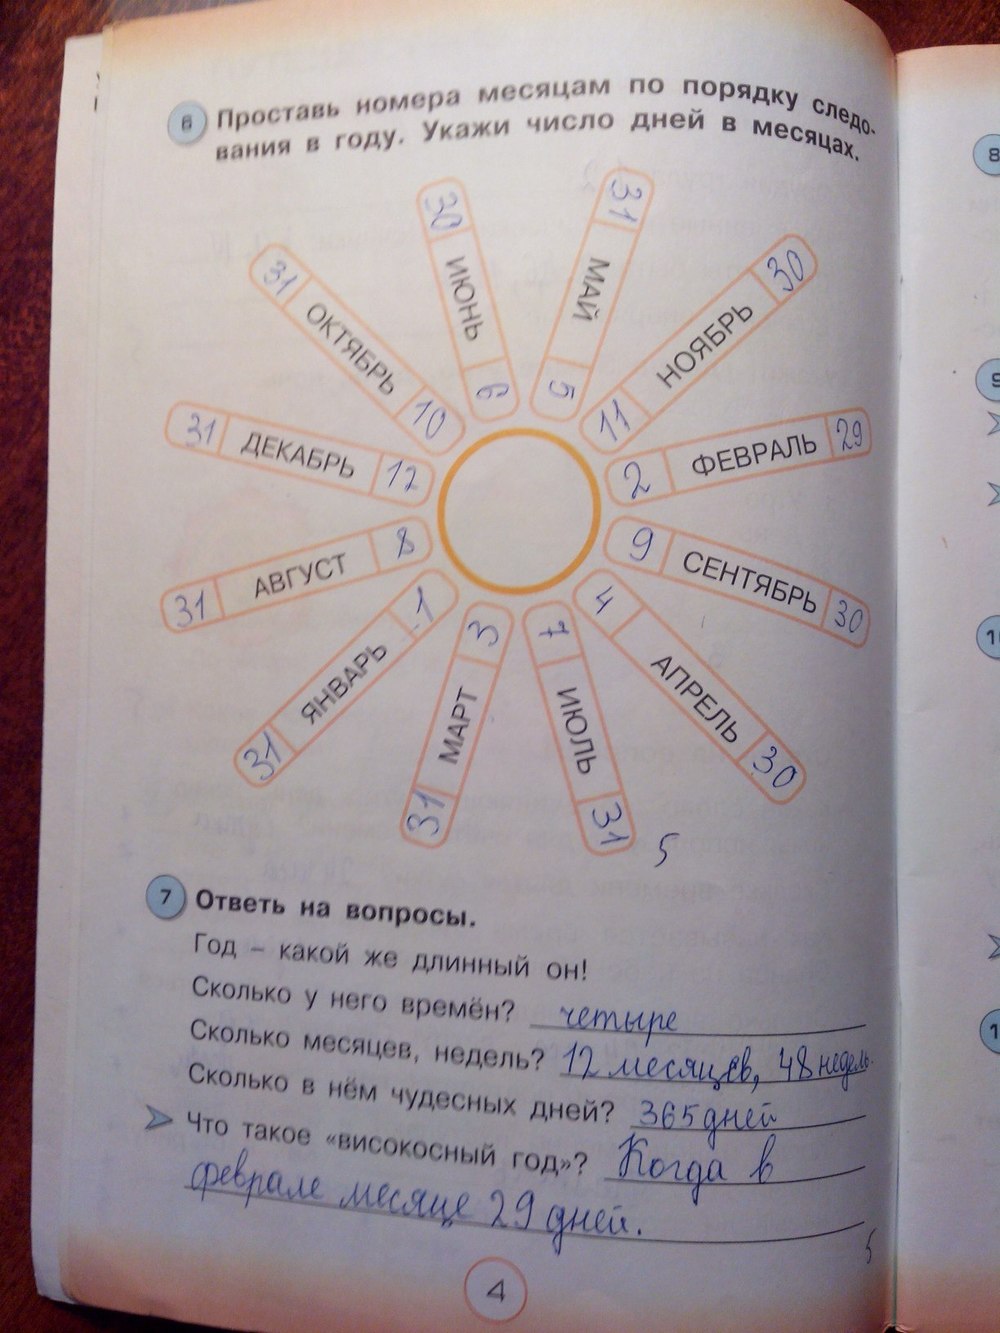 6 Проставь номера месяцам по порядку следо-
вания в году. Укажи число дней в месяцах.
30 ИЮНЬ 6
31 МАЙ 5
11 НОЯБРЬ 30
2 ФЕВРАЛЬ 29
9 СЕНТЯБРЬ 30
4 АПРЕЛЬ 30
7 ИЮЛЬ 31
3 МАРТ 31
31 ЯНВАРЬ 1
31 АВГУСТ 8
31 ДЕКАБРЬ 12
31 ОКТЯБРЬ 10
5
7 Ответь на вопросы.
Год – какой же длинный он!
Сколько у него времён? четыре
Сколько месяцев, недель? 12 месяцев, 48 недель.
Сколько в нём чудесных дней? 365 дней
Что такое «високосный год»? Когда в
феврале месяце 29 дней.
5
4
8